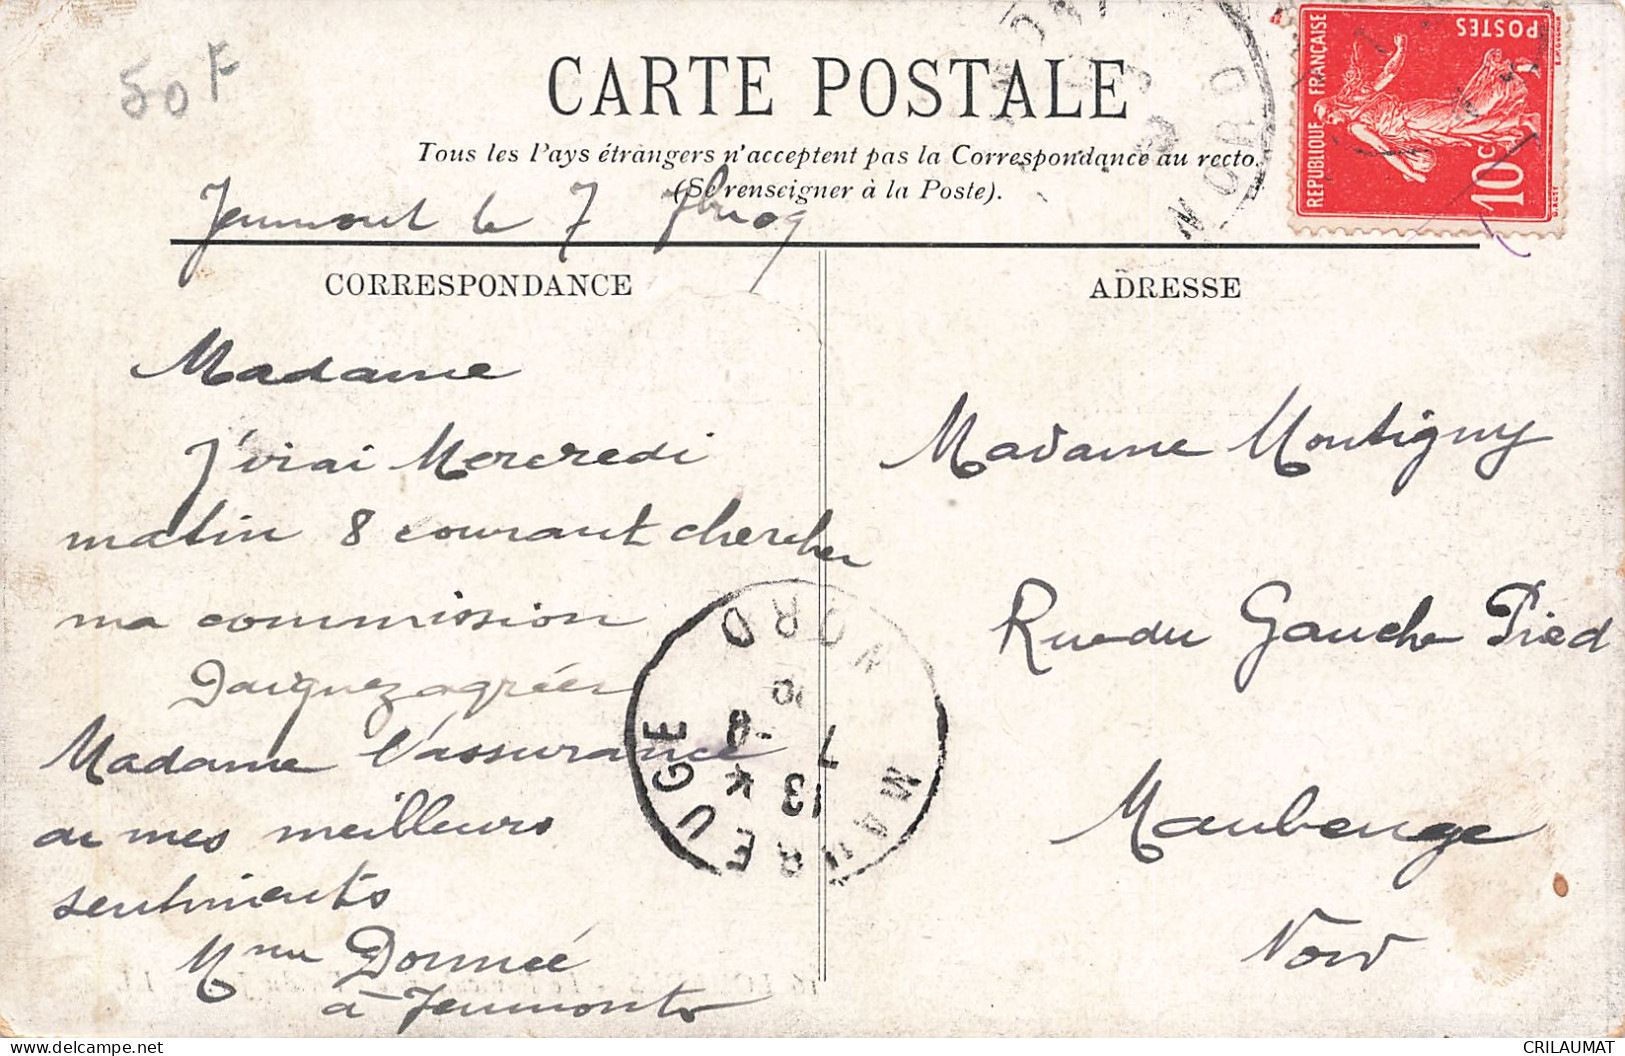 50 F
CARTE POSTALE
Tous les Pays étrangers n'acceptent pas la Correspondance au recto.
(Se renseigner à la Poste).
Jeumont le 7 7bre 09
REPUBLIQUE FRANÇAISE
POSTES
10c
CORRESPONDANCE
ADRESSE
Madame
J'irai Mercredi
matin 8 courant chercher
ma commission
Daignez agréer
Madame l'assurance
de mes meilleurs
sentiments
Mme Donnéé
à Jeumont
Madame Montigny
Rue du Gauche Pied
Maubeuge
Nord
MAUBEUGE
NORD
13 K
7 - 9
NORD
CRILAUMAT